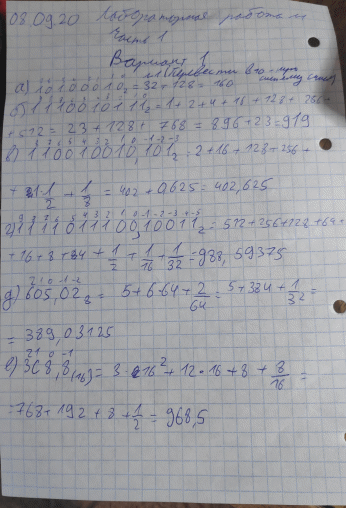 08.09.20 Лабораторная работа 1
Часть 1
Вариант 1
№1 (Перевести в 10-ную систему счисл)
а) 10100010₂ = 32 + 128 = 160
б) 1110010111₂ = 1 + 2 + 4 + 16 + 128 + 256 +
+ 512 = 23 + 128 + 768 = 896 + 23 = 919
7 6 5 4 3 2 1 0 -1 -2 -3
в) 110010010,101₂ = 2 + 16 + 128 + 256 +
+ 1/2 + 1/8 = 402 + 0,625 = 402,625
9 8 7 6 5 4 3 2 1 0 -1 -2 -3 -4 -5
г) 1111011100,10011₂ = 512 + 256 + 128 + 64 +
+ 16 + 8 + 84 + 1/2 + 1/16 + 1/32 = 988,59375
2 1 0 -1 -2
д) 605,02₈ = 5 + 6·64 + 2/64 = 5 + 384 + 1/32 =
= 389,03125
2 1 0 -1
е) 3C8,8(16) = 3·16² + 12·16 + 8 + 8/16 =
= 768 + 192 + 8 + 1/2 = 968,5